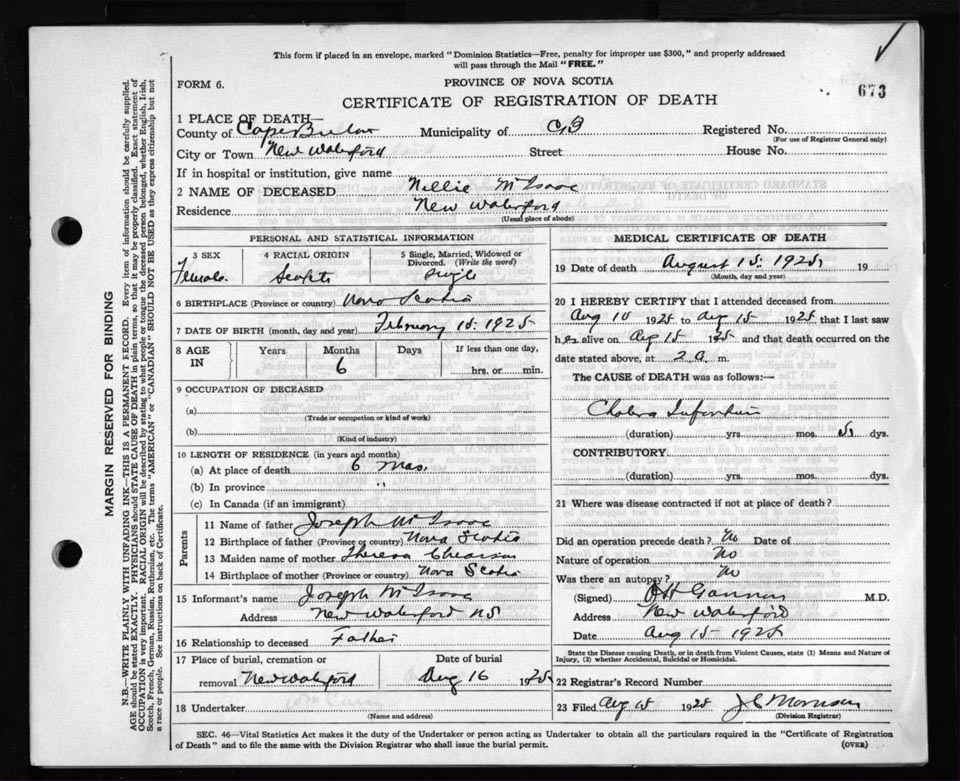 This form if placed in an envelope, marked "Dominion Statistics—Free, penalty for improper use $300," and properly addressed
will pass through the Mail "FREE."
FORM 6.
PROVINCE OF NOVA SCOTIA
673
CERTIFICATE OF REGISTRATION OF DEATH
1 PLACE OF DEATH—
County of Cape Breton Municipality of CB Registered No.
(For use of Registrar General only)
City or Town New Waterford Street House No.
If in hospital or institution, give name
2 NAME OF DECEASED Nellie McIsaac
Residence New Waterford
(Usual place of abode)
PERSONAL AND STATISTICAL INFORMATION
3 SEX Female
4 RACIAL ORIGIN Scotch
5 Single, Married, Widowed or Divorced. (Write the word) Single
6 BIRTHPLACE (Province or country) Nova Scotia
7 DATE OF BIRTH (month, day and year) February 15. 1925
8 AGE IN Years Months 6 Days If less than one day, hrs. or min.
9 OCCUPATION OF DECEASED
(a)
(Trade or occupation or kind of work)
(b)
(Kind of industry)
10 LENGTH OF RESIDENCE (in years and months)
(a) At place of death 6 mos.
(b) In province "
(c) In Canada (if an immigrant)
Parents
11 Name of father Joseph McIsaac
12 Birthplace of father (Province or country) Nova Scotia
13 Maiden name of mother Theresa
14 Birthplace of mother (Province or country) Nova Scotia
15 Informant's name Joseph McIsaac
Address New Waterford NS
16 Relationship to deceased Father
17 Place of burial, cremation or removal New Waterford
Date of burial Aug 16 1925
18 Undertaker
(Name and address)
MEDICAL CERTIFICATE OF DEATH
19 Date of death August 15. 1925, 19
(Month, day and year)
20 I HEREBY CERTIFY that I attended deceased from
Aug 10 1925 to Aug 15 1925 that I last saw
her alive on Aug 15 1925 and that death occurred on the
date stated above, at 2 a. m.
The CAUSE of DEATH was as follows:—
Cholera Infantum
(duration) yrs. mos. 5 dys.
CONTRIBUTORY
(duration) yrs. mos. dys.
21 Where was disease contracted if not at place of death?
Did an operation precede death? No Date of
Nature of operation No
Was there an autopsy? No
(Signed) M.D.
Address New Waterford
Date Aug 15 - 1925
State the Disease causing Death, or in death from Violent Causes, state (1) Means and Nature of
Injury, (2) whether Accidental, Suicidal or Homicidal.
22 Registrar's Record Number
23 Filed Aug 15 1925 J C Morrison
(Division Registrar)
SEC. 46—Vital Statistics Act makes it the duty of the Undertaker or person acting as Undertaker to obtain all the particulars required in the "Certificate of Registration
of Death" and to file the same with the Division Registrar who shall issue the burial permit.
(OVER)
MARGIN RESERVED FOR BINDING
N.B.—WRITE PLAINLY WITH UNFADING INK—THIS IS A PERMANENT RECORD. Every item of information should be carefully supplied.
AGE should be stated EXACTLY. PHYSICIANS should STATE CAUSE OF DEATH in plain terms, so that it may be properly classified. Exact statement of
OCCUPATION is very important. RACIAL ORIGIN will be described by stating to what people or tongue the deceased person belonged, whether English, Irish,
Scotch, French, German, Russian, Ruthenian, etc. The terms "AMERICAN" or "CANADIAN" SHOULD NOT BE USED as they express citizenship but not
a race or people. See instructions on back of Certificate.